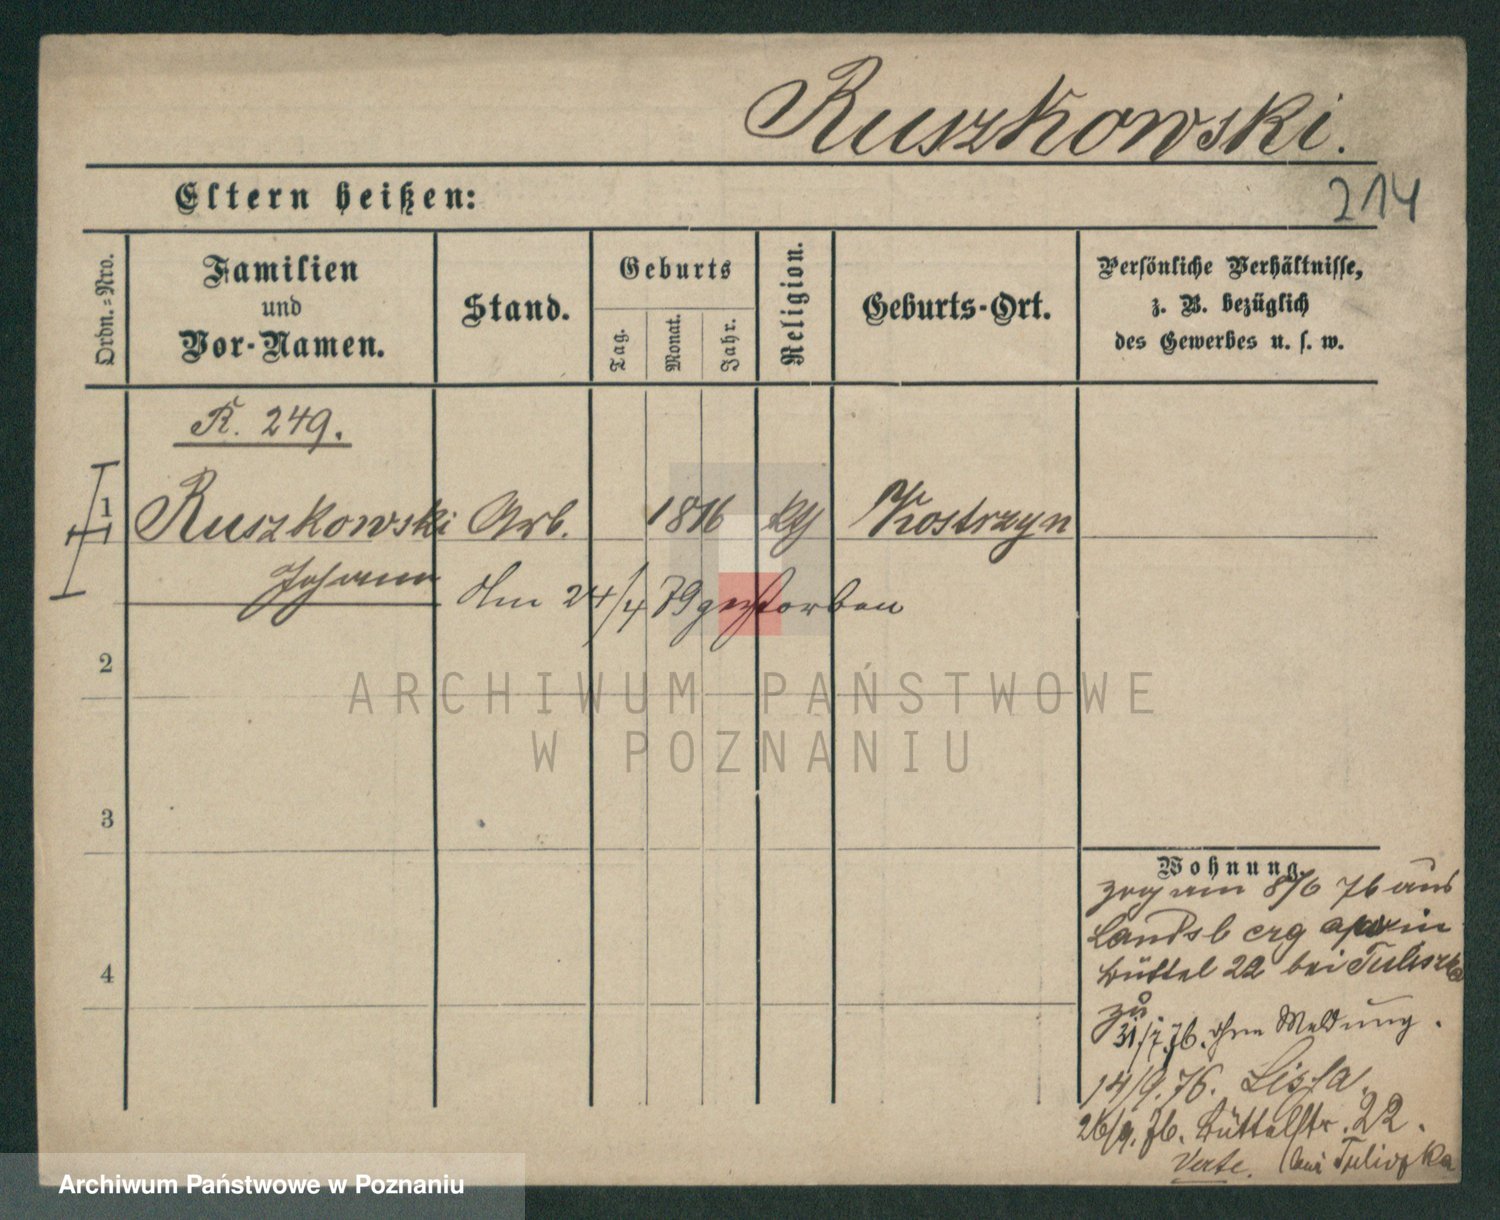 Ruszkowski.
214
Eltern heißen:
Ordn.=Nro.
Familien
und
Vor-Namen.
Stand.
Geburts
Tag.
Monat.
Jahr.
Religion.
Geburts-Ort.
Persönliche Verhältnisse,
z. B. bezüglich
des Gewerbes u. s. w.
K. 249.
1
Ruszkowski Arb. 1816 kth Kostrzyn
Johann Am 24/4 79 gestorben
2
ARCHIWUM PAŃSTWOWE
W POZNANIU
3
4
Wohnung.
zog am 8/6 76 aus
Landsberg
Büttel 22 bei Tuliszka
zu
31/7. 76. ohne Meldung.
14/9. 76. Lissa.
26/9. 76. Büttelstr. 22.
bei Tuliszka
Verte.
Archiwum Państwowe w Poznaniu